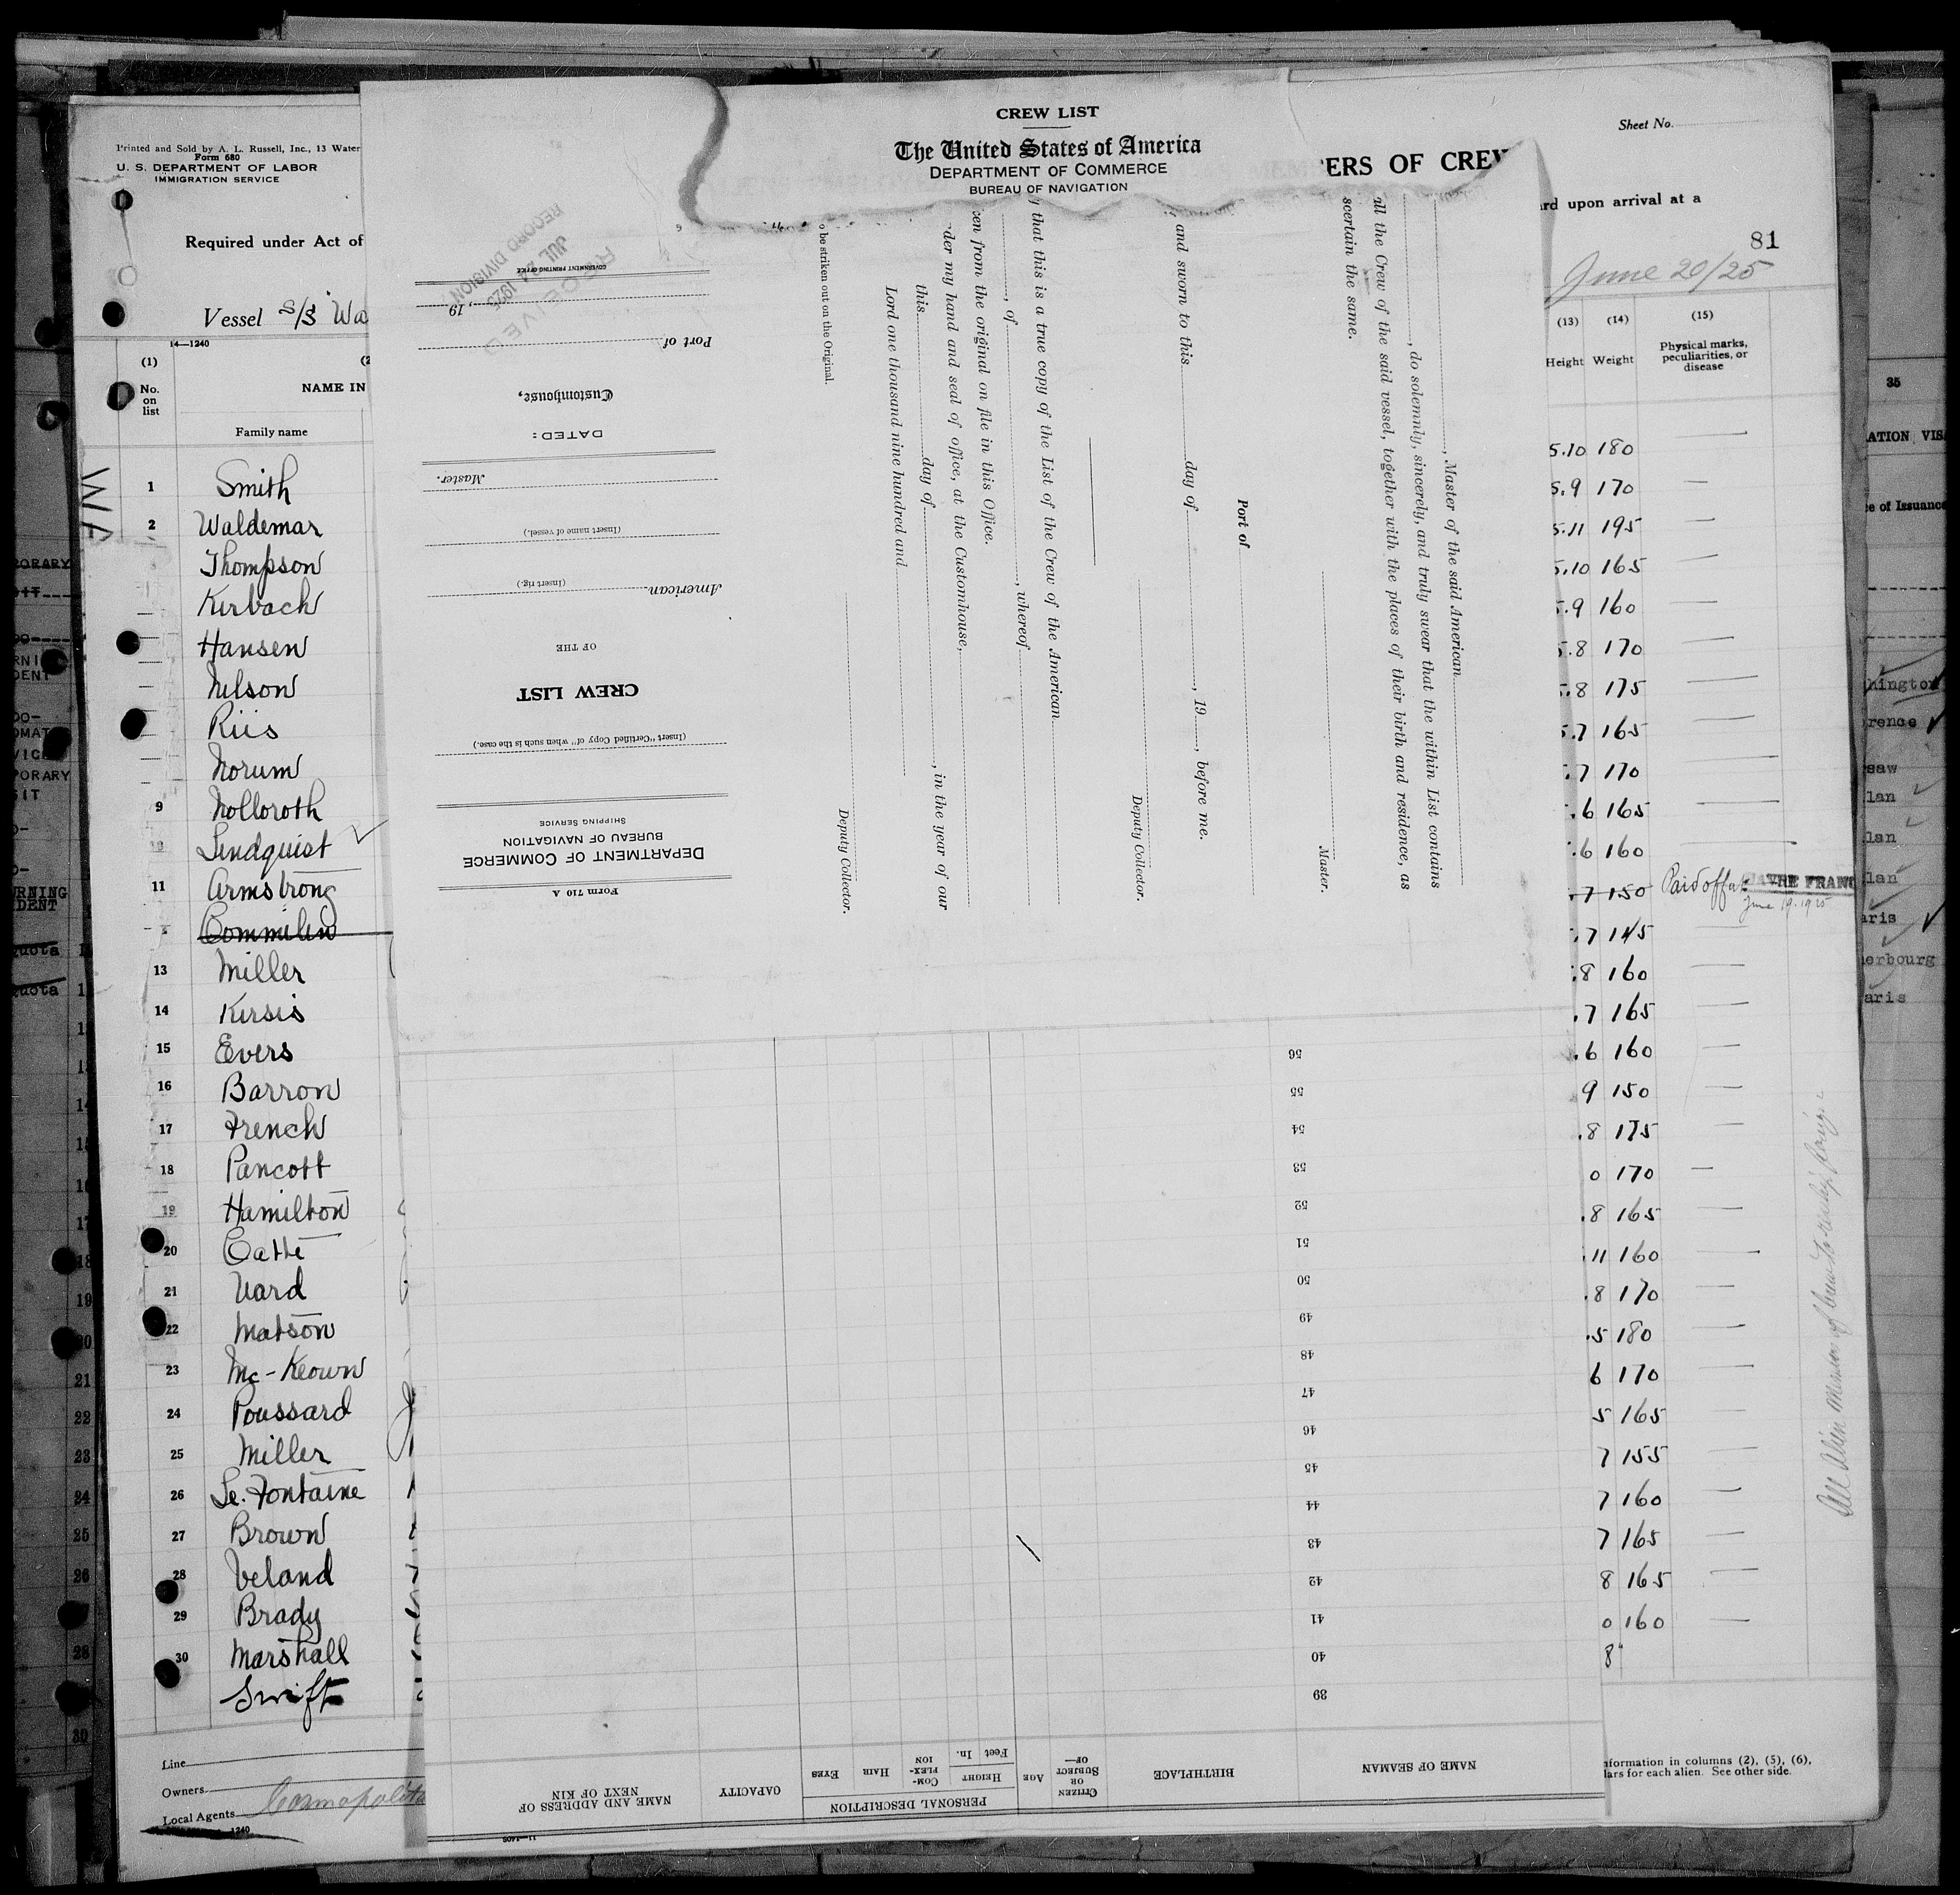 CREW LIST
The United States of America
DEPARTMENT OF COMMERCE
BUREAU OF NAVIGATION
Sheet No.
ERS OF CREW
rd upon arrival at a
81
June 20/25
Printed and Sold by A. L. Russell, Inc., 13 Water
Form 680
U. S. DEPARTMENT OF LABOR
IMMIGRATION SERVICE
Required under Act of
Vessel S/S Wa
14—1240
(1)
No. on list
NAME IN
Family name
WA
1 Smith
2 Waldemar
Thompson
Kerbach
Hansen
Nelson
Riis
Norum
9 Nolloroth
Lindquist
11 Armstrong
Commilin
13 Miller
14 Kersis
15 Evers
16 Barron
17 French
18 Pancott
19 Hamilton
20 Catte
21 Ward
22 Matson
23 Mc-Keown
24 Poussard
25 Miller
26 Le. Fontaine
27 Brown
28 Veland
29 Brady
30 Marshall
Swift
Line
Owners
Local Agents Cosmopolita
1240
RECEIVED
JUL 24 1925
RECORD DIVISION
GOVERNMENT PRINTING OFFICE
, 19
Port of
Customhouse,
DATED:
Master.
(Insert name of vessel.)
(Insert rig.)
American
OF THE
CREW LIST
(Insert "Certified Copy of" when such is the case.)
SHIPPING SERVICE
BUREAU OF NAVIGATION
DEPARTMENT OF COMMERCE
Form 710 A
, Master of the said American
, do solemnly, sincerely, and truly swear that the within List contains
all the Crew of the said vessel, together with the places of their birth and residence, as
scertain the same.
Master.
Port of
and sworn to this day of , 19 , before me.
Deputy Collector.
that this is a true copy of the List of the Crew of the American
, of , whereof
en from the original on file in this Office.
der my hand and seal of office, at the Customhouse,
this day of , in the year of our
Lord one thousand nine hundred and
Deputy Collector.
o be striken out on the Original.
56
55
54
53
52
51
50
49
48
47
46
45
44
43
42
41
40
39
NAME OF SEAMAN
BIRTHPLACE
CITIZEN OR SUBJECT OF—
AGE
PERSONAL DESCRIPTION
HEIGHT
Feet In.
COMPLEXION
HAIR
EYES
CAPACITY
NAME AND ADDRESS OF NEXT OF KIN
11—1408
(13) (14) (15)
Height Weight Physical marks, peculiarities, or disease
5.10 180 —
5.9 170 —
5.11 195 —
5.10 165 —
.9 160 —
.8 170 —
.8 175 —
.7 165 —
.7 170 —
.6 165 —
.6 160 —
.7 150 Paid off at HAVRE FRANC
June 19. 1925
.7 145 —
.8 160 —
.7 165 —
.6 160 —
9 150 —
.8 175 —
0 170 —
.8 165 —
.11 160 —
.8 170 —
.5 180 —
6 170 —
5 165 —
7 155 —
7 160 —
7 165 —
8 165 —
0 160 —
8"
nformation in columns (2), (5), (6),
lars for each alien. See other side.
35
ATION VIS
e of Issuance
hington
rence
saw
lan
lan
lan
aris
erbourg
aris
PORARY
PORARY
URNING
DENT
quota
quota
21
22
23
24
25
26
28
30